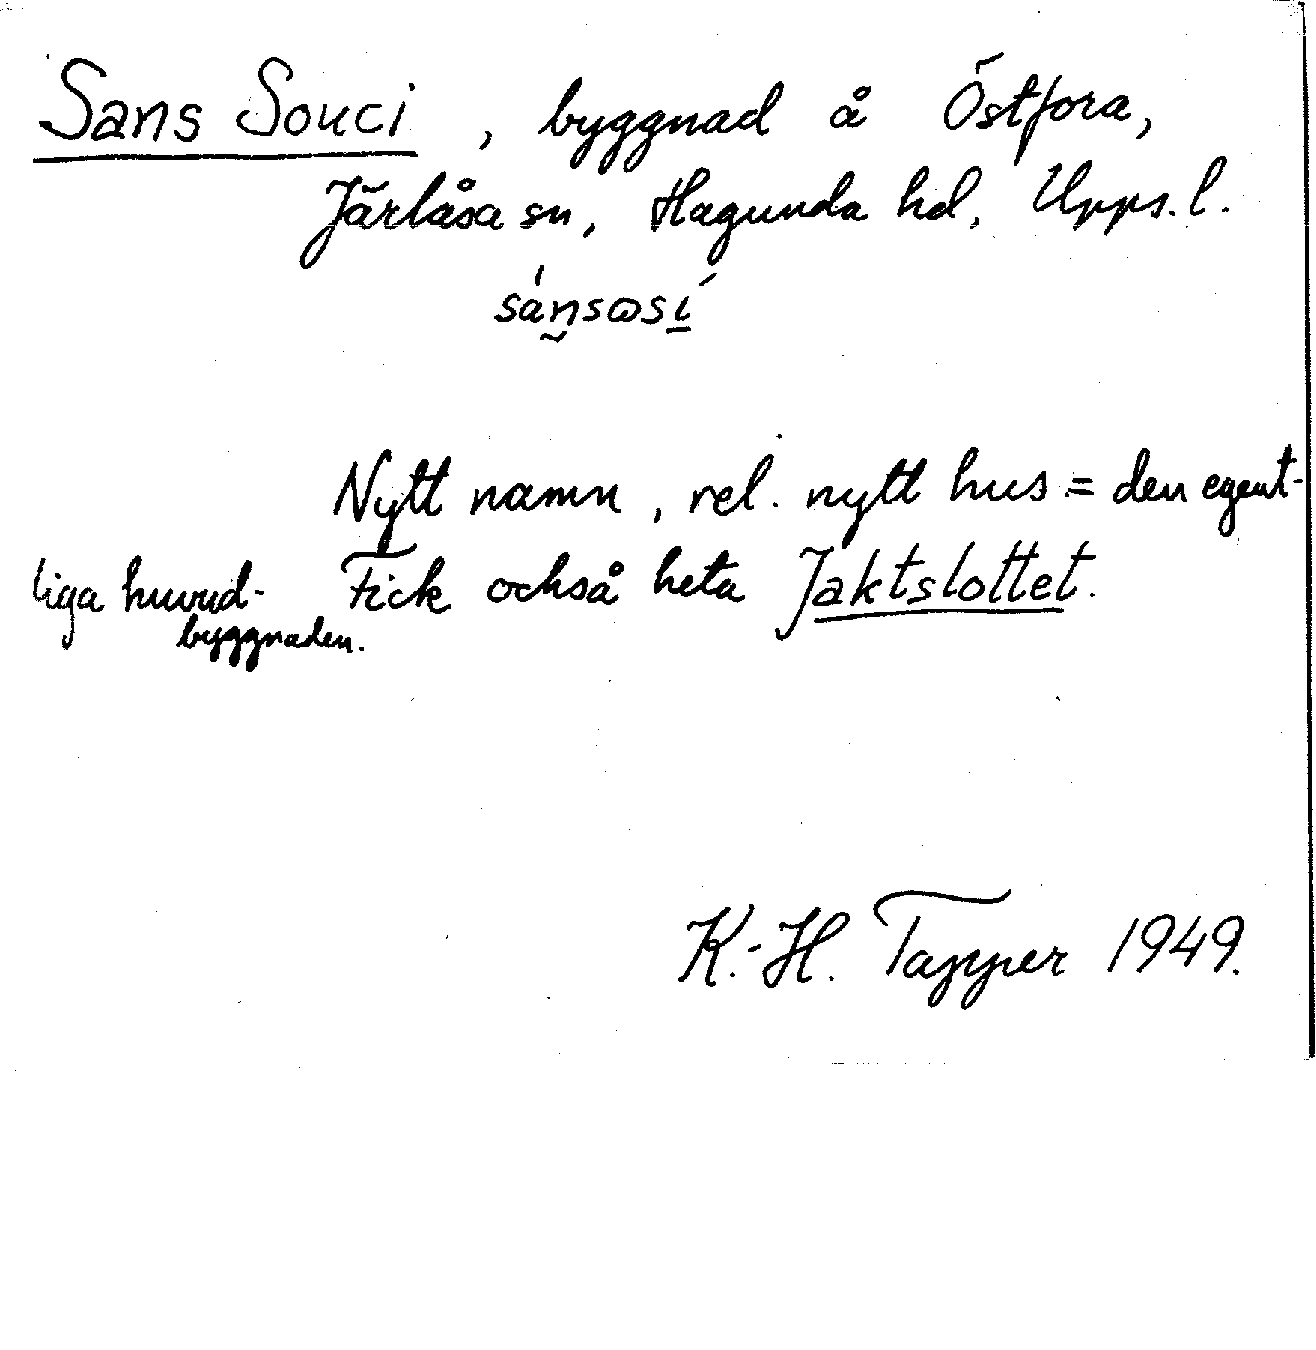 Sans Souci, byggnad å Östfora,
Järlåsa sn, Hagunda hd, Upps. l.
sánsωsí
Nytt namn, rel. nytt hus = den egent-
liga huvud- Fick också heta Jaktslottet.
byggnaden.
K.-H. Tapper 1949.